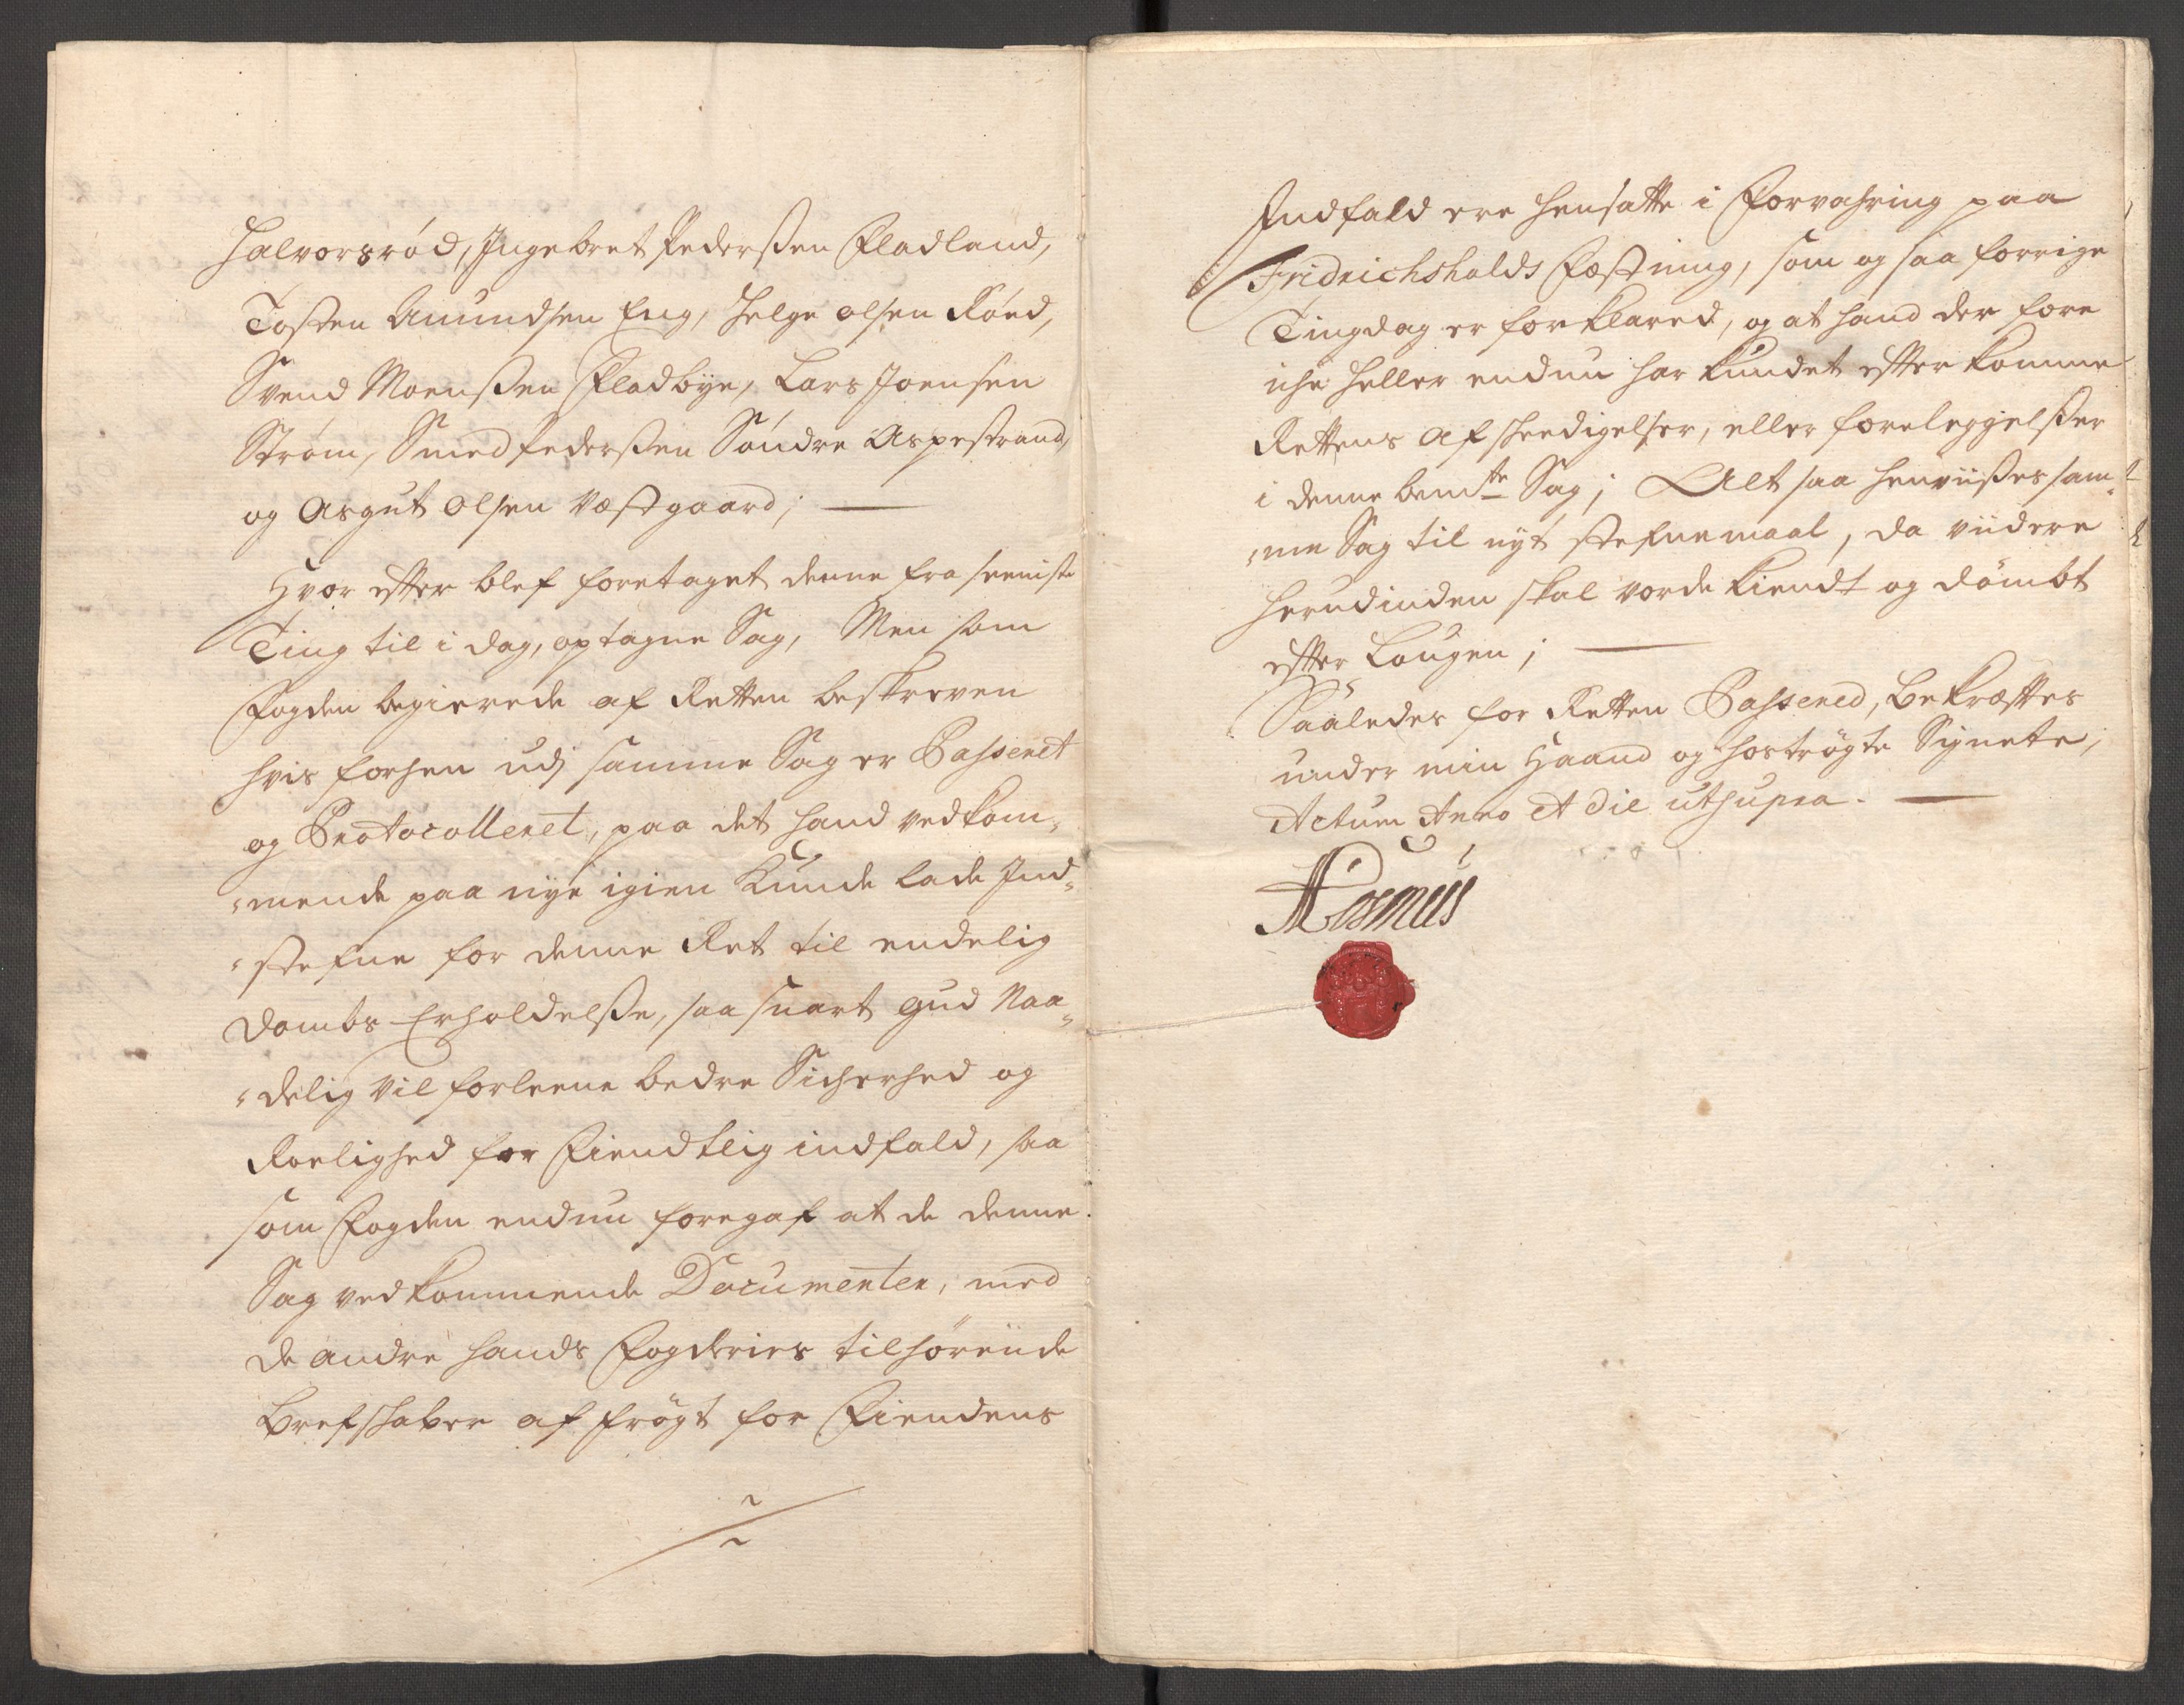 Halvorsrød, Ingebret Pederßen Fladland,
Tosten Amundsen Eng, Helge olsen Røed,
Svend Monsßen Fladbÿe, Lars Joensen
Strøm, Smed Pederßen Søndre Aspestrand,
og Asgut Olsen Væstgaard;
Hvor effter blef foretaget denne fra seeniste
Ting til i dag, optagne Sag, Men som
Fogden begierede af Retten beskreven
hvis forhen udj samme Sag er Passeret
og Protocolleret, paa det hand vedkom„
„mende paa nÿe igien Kunde lade Ind„
„stefne for denne Ret til endelig
Dombs Erholdelße, saa snart Gud Naa„
„delig vil forleene bedre Sicherhed og
Roelighed for Fiendtlig indfald, saa
som Fogden endnu foregaf at de denne
Sag vedkommende Documenter, med
de andre hands Fogderies tilhørende
Brefskaber af frøgt for Fiendens
Indfald ere hensatte i Forvahring paa
Fridrichshalds Fæstning, som og saa forrige
Tingdag er forklared, og at hand der fore
iche heller endnu har kundet effter komme
Rettens Afskeedigelser, eller foreleggelßer
i denne bemte Sag; Alt saa henviißes sam„
„me Sag til nÿt stefnemaal, da viidere
herudinden skal vorde kiendt og dømbt
effter Lougen;
Saaledes for Retten Passered, bekræfftes
under min Haand og hostrøgte Signete;
Actum Anno et die utsupra.